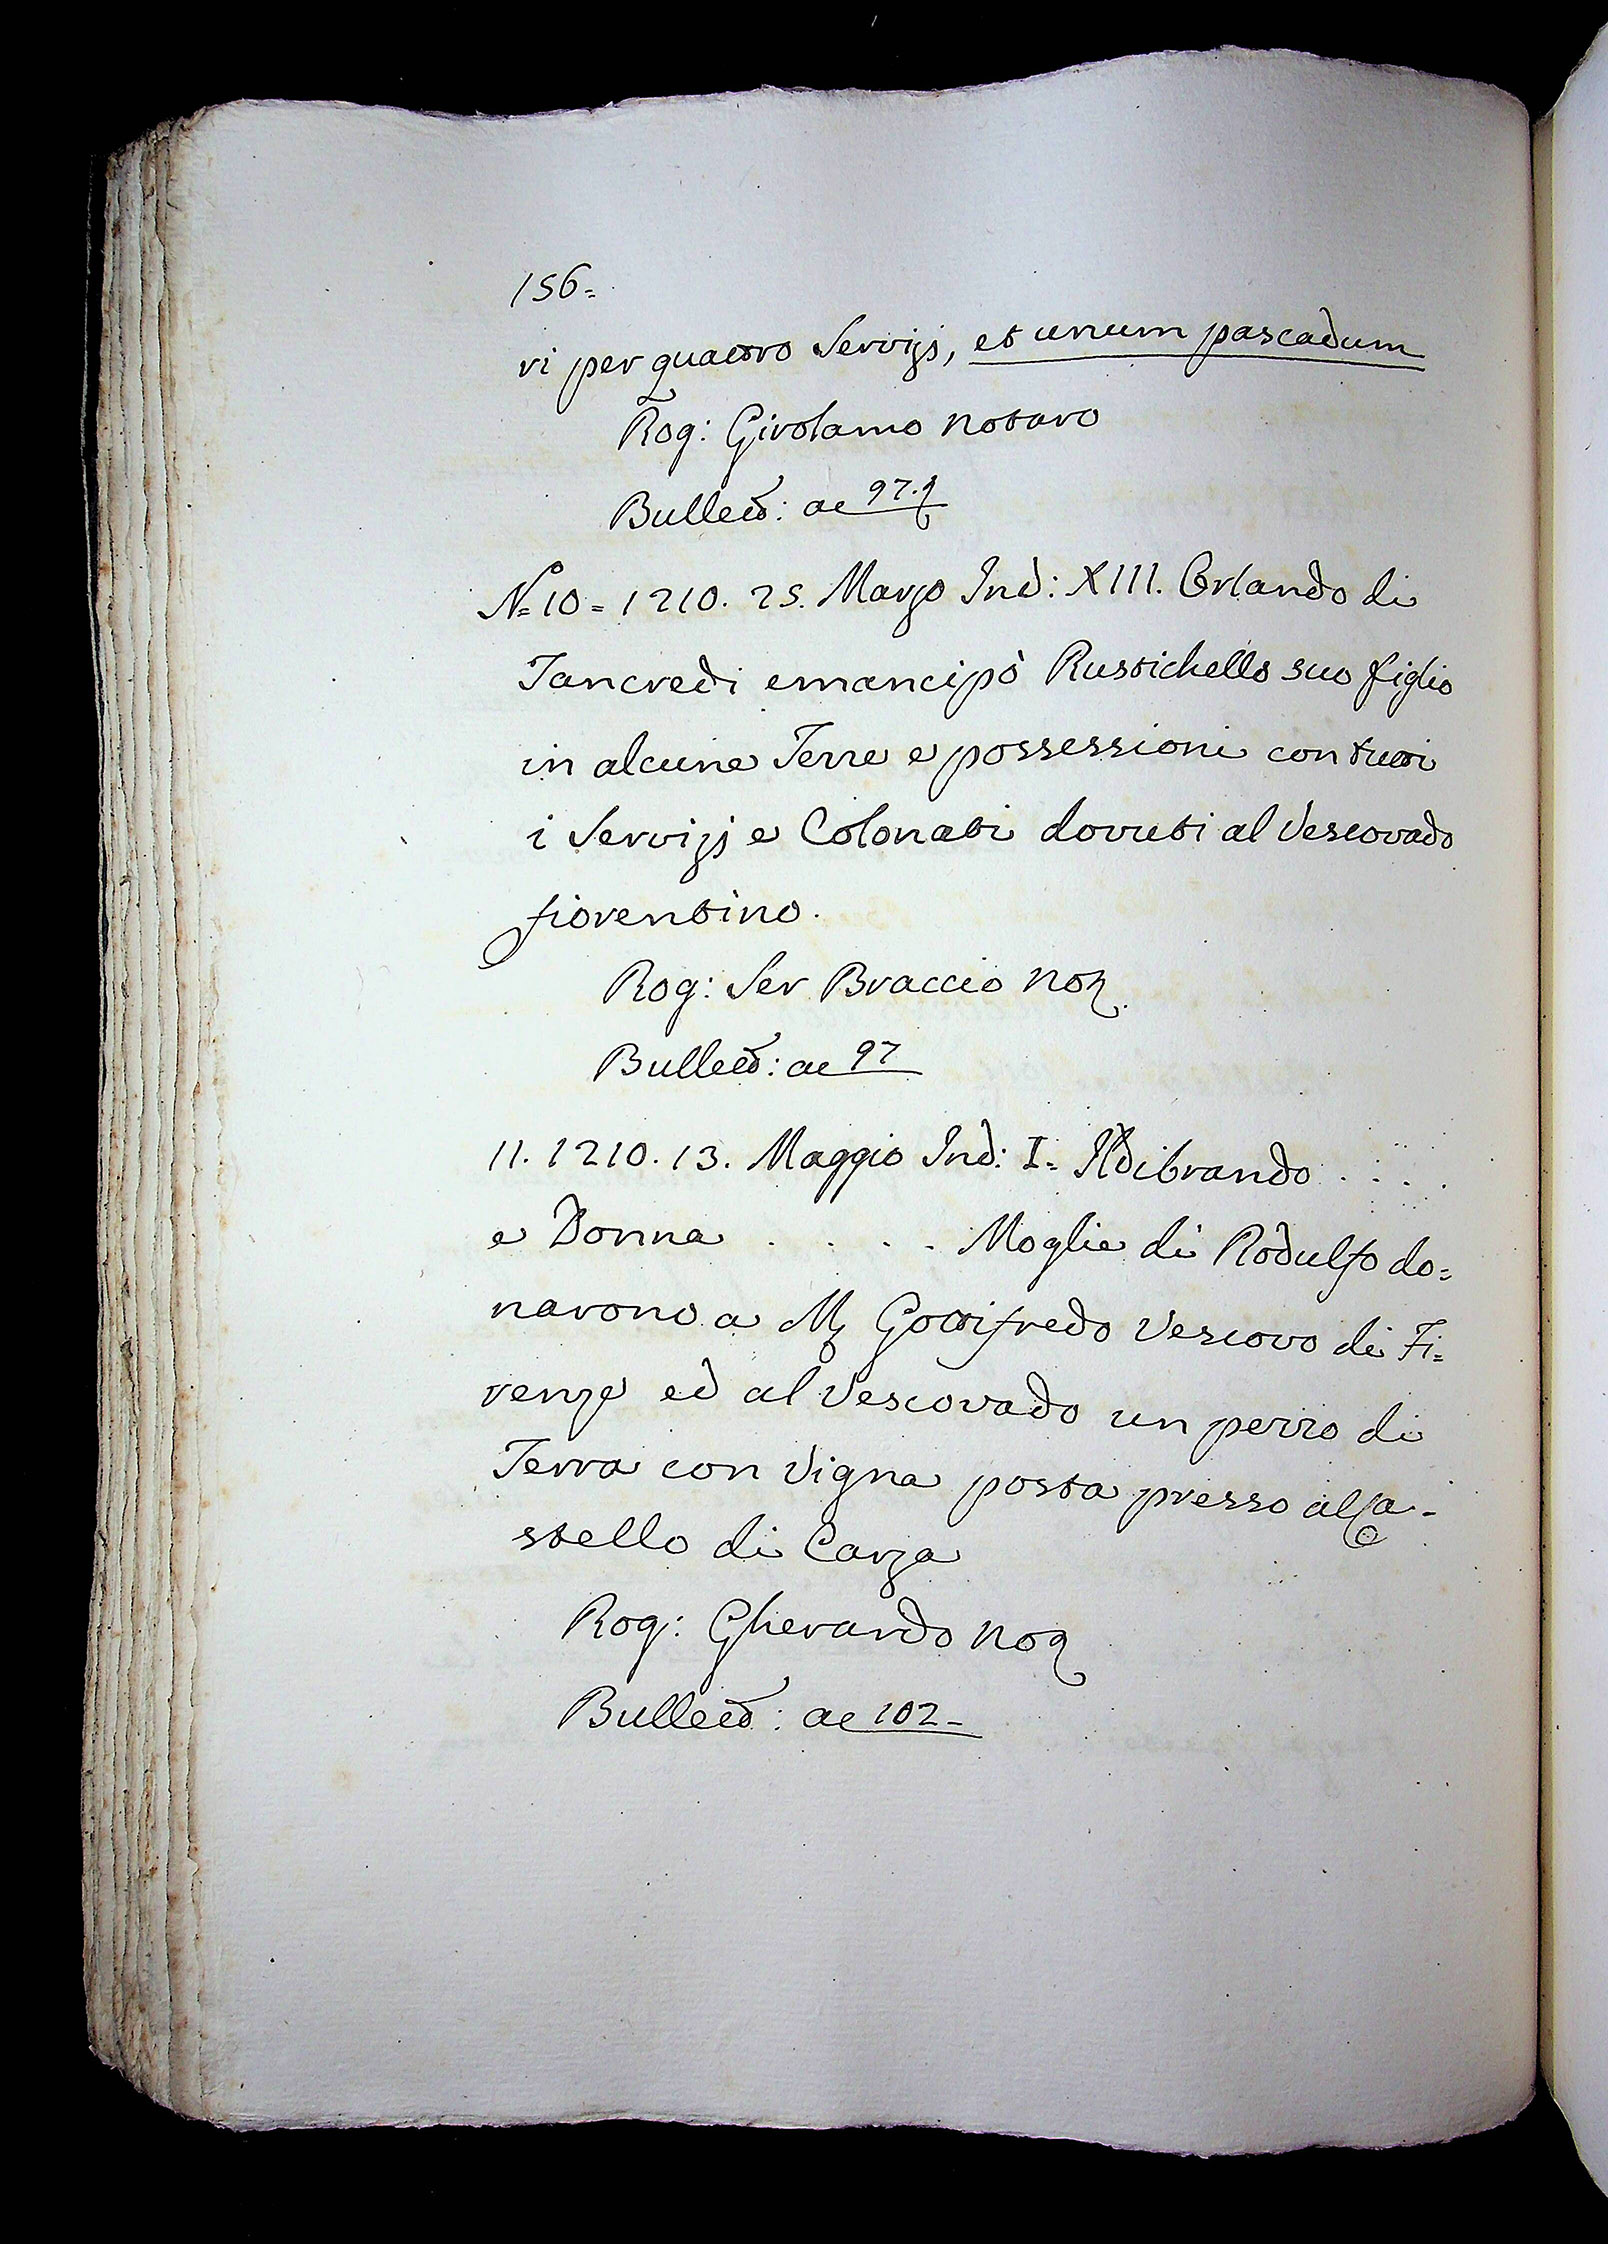 156=
ri per quattro Servizj, et unum pascadum
Rog: Girolamo notaro
Bullett: ac 97.
N= 10 = 1210. 25. Marzo Ind: XIII. Orlando di
Tancredi emancipò Rustichello suo figlio
in alcune Terre e possessioni con tutti
i Servizj e Colonati dovuti al Vescovado
fiorentino.
Rog: Ser Braccio Not
Bullett: ac 97
11. 1210. 13. Maggio Ind: I= Ildibrando . . . .
e Donna . . . . Moglie di Rodulfo do=
narono a M Gottifredo Vescovo di Fi=
renze ed al Vescovado un pezzo di
Terra con Vigna posta presso al Ca-
stello di Carza
Rog: Gherardo not
Bullett: ac 102-